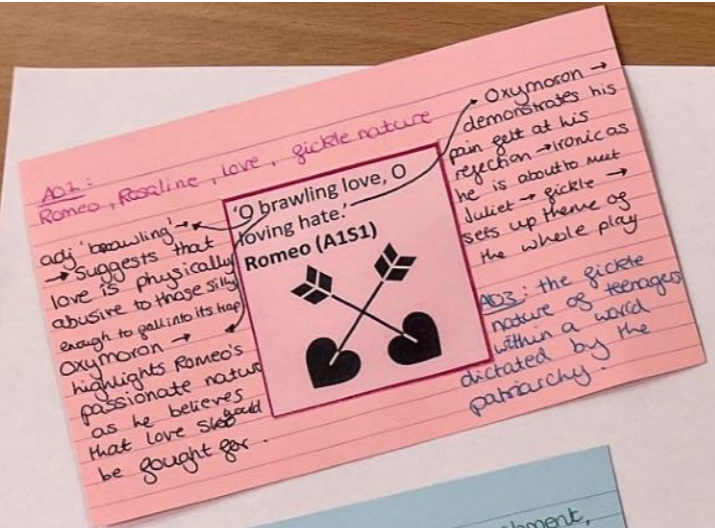 AO1:
Romeo, Rosaline, love, fickle nature
adj 'brawling' →
→ Suggests that
love is physically
abusive to those silly
enough to fall into its trap
Oxymoron →
highlights Romeo's
passionate nature
as he believes
that love should
be fought for.
'O brawling love, O
loving hate.'
Romeo (A1S1)
Oxymoron →
demonstrates his
pain felt at his
rejection → ironic as
he is about to meet
Juliet → fickle →
sets up theme of
the whole play
AO3: the fickle
nature of teenagers
within a world
dictated by the
patriarchy.